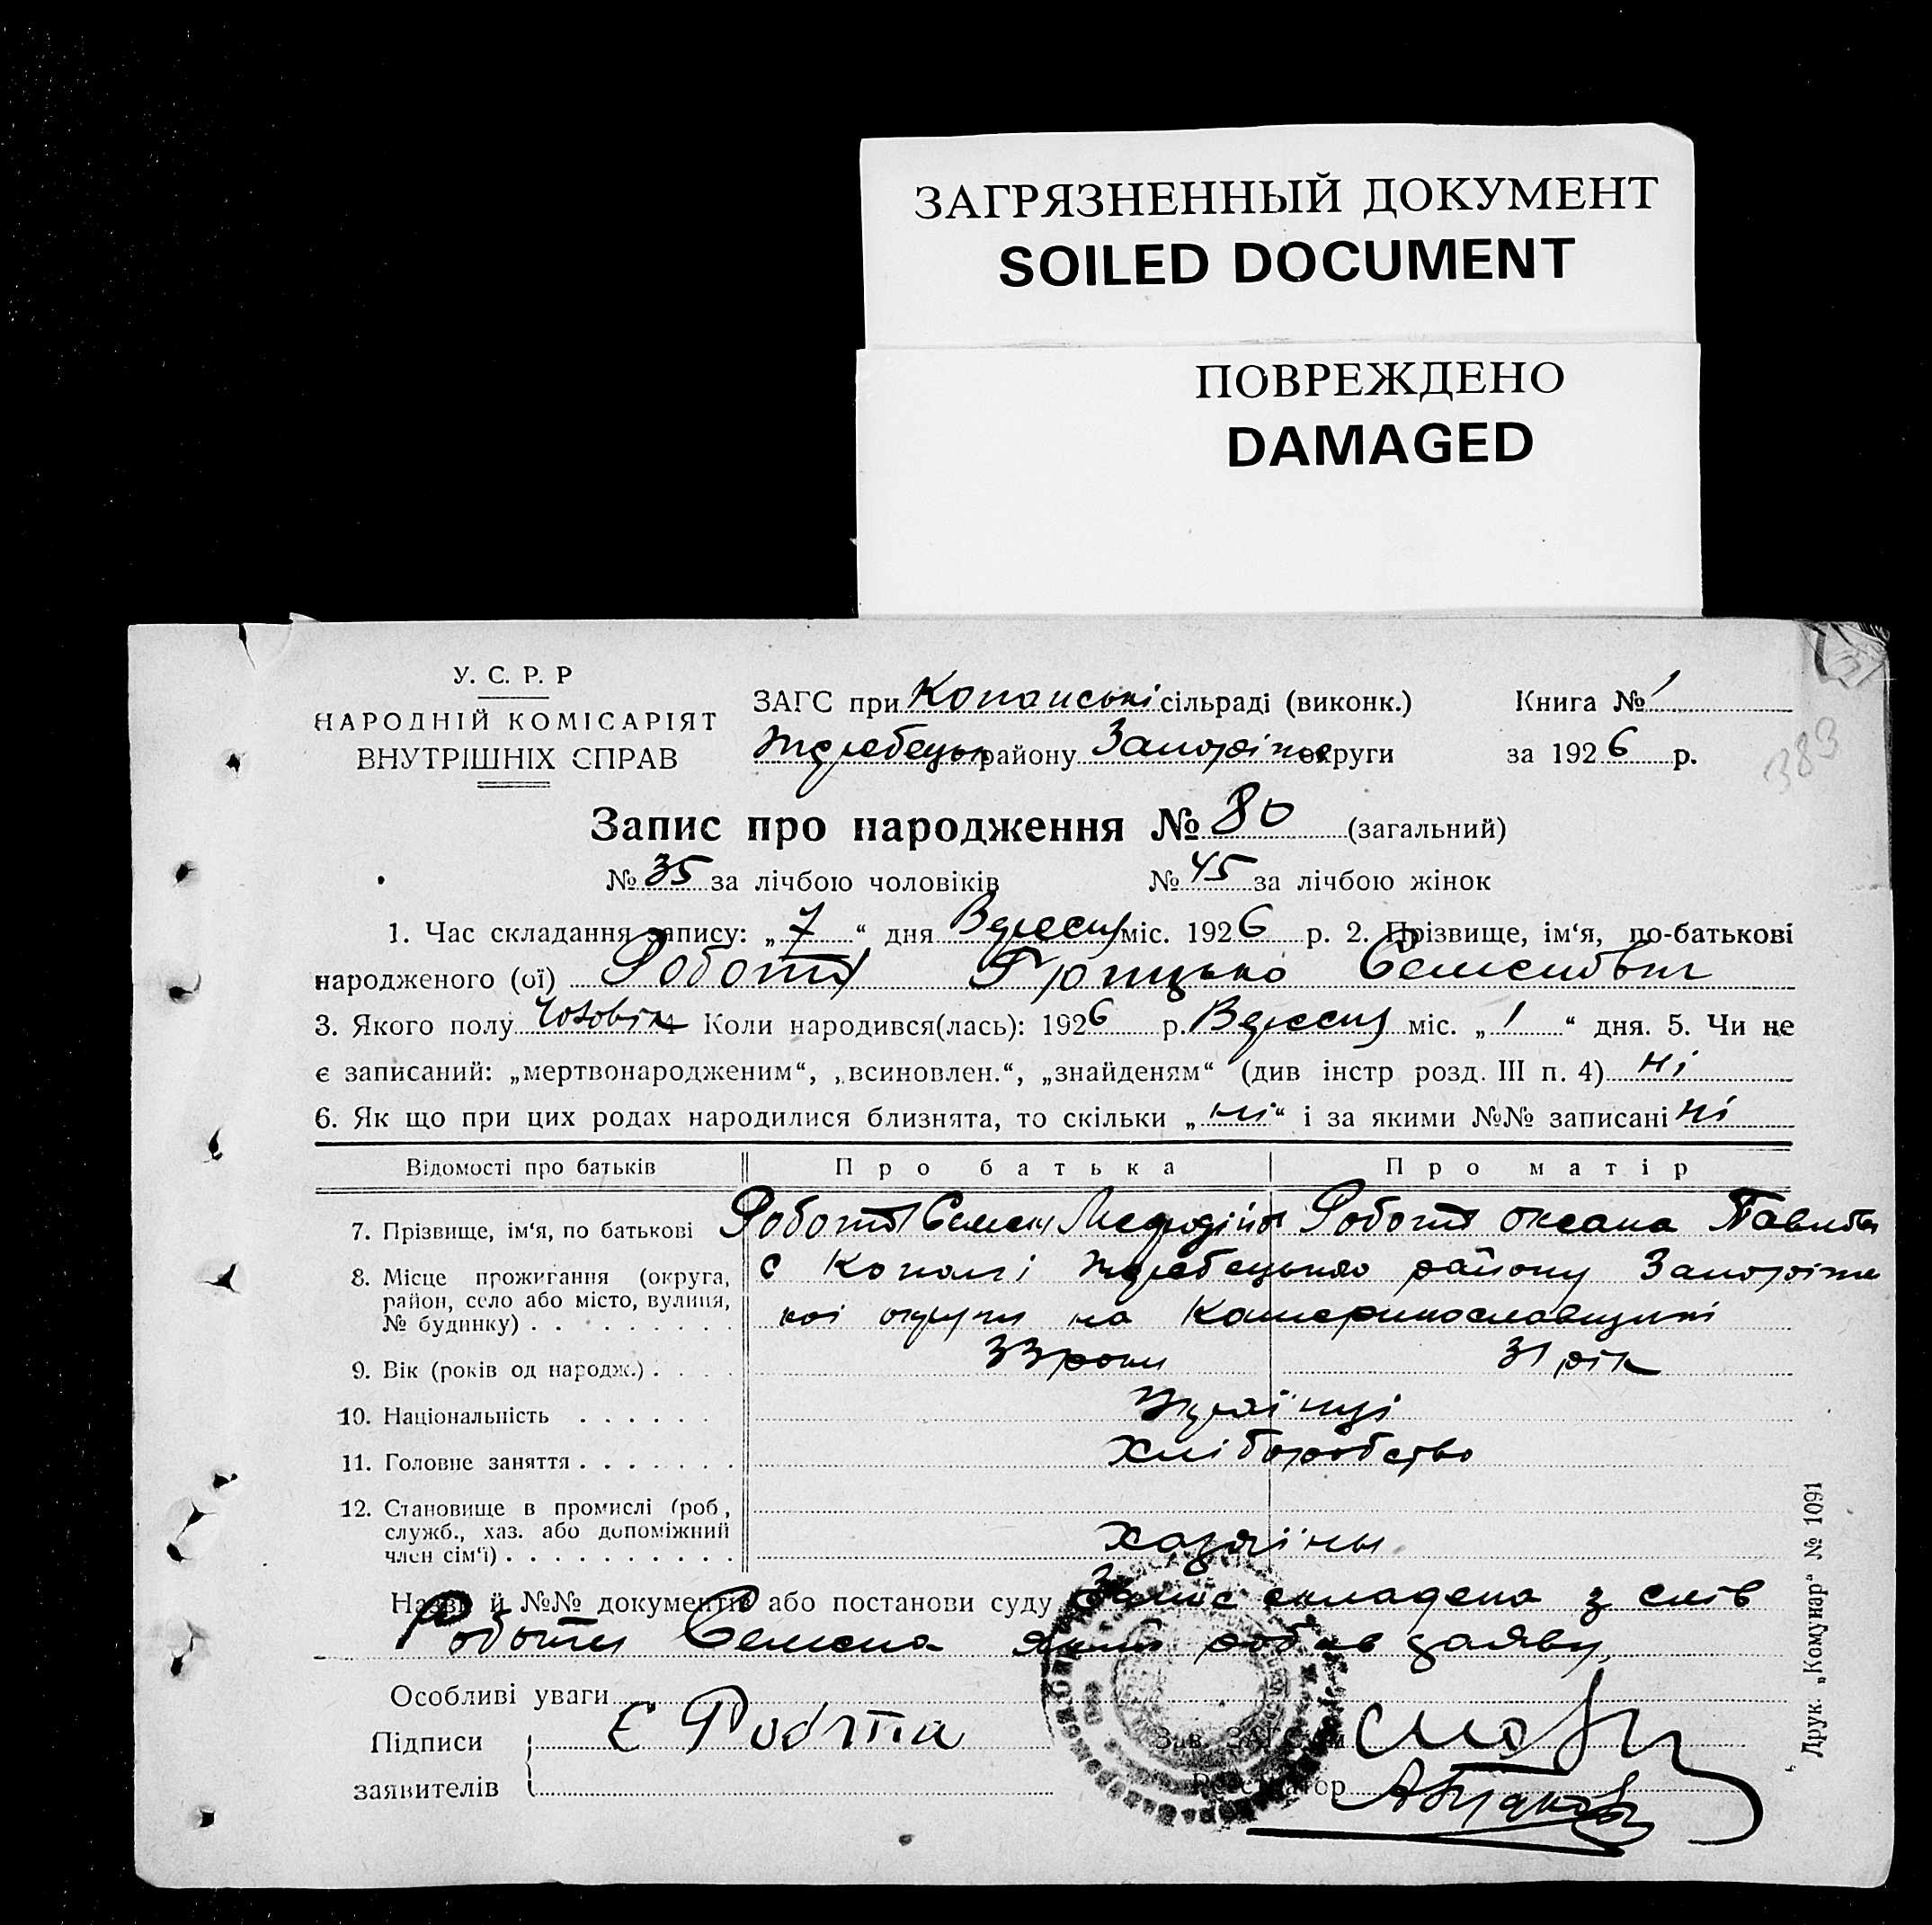 ЗАГРЯЗНЕННЫЙ ДОКУМЕНТ
SOILED DOCUMENT
ПОВРЕЖДЕНО
DAMAGED
У. С. Р. Р
НАРОДНІЙ КОМІСАРІЯТ
ВНУТРІШНІХ СПРАВ
ЗАГС при Копанські сільраді (виконк.)
Книга № 1
Жеребецьк району Запоріжс округи
за 1926 р.
383
Запис про народження № 80 (загальний)
№ 35 за лічбою чоловіків № 45 за лічбою жінок
1. Час складання запису: „7“ дня Вересня міс. 1926 р. 2. Прізвище, ім‘я, по-батькові
народженого (ої) Робота Грицько Семенович
3. Якого полу Чоловік 4 Коли народився(лась): 1926 р. Вересня міс. „1“ дня. 5. Чи не
є записаний: „мертвонародженим“, „всиновлен.“, „знайденям“ (див інстр розд. III п. 4) ні
6. Як що при цих родах народилися близнята, то скільки „ні“ і за якими №№ записані ні
Відомості про батьків Про батька Про матір
7. Прізвище, ім‘я, по батькові Робота Семен Робота Оксана Павлів
8. Місце прожигання (округа, район, село або місто, вулиця, № будинку)
с Копані Жеребецького району Запоріжс
кої округи на Катеринославщині
9. Вік (років од народж.) 33 роки 31 рік
10. Національність Українці
11. Головне заняття Хліборобство
12. Становище в промислі (роб., служб., хаз. або допоміжний член сім‘ї) Хазяїни
Назви й №№ документів або постанови суду Запис складено з слів
Роботи Семена який робив заяву.
Особливі уваги
Підписи заявителів С Робота
Зав. ЗАГС'ом
Реєстратор
Друк. „Комунар“ № 1091